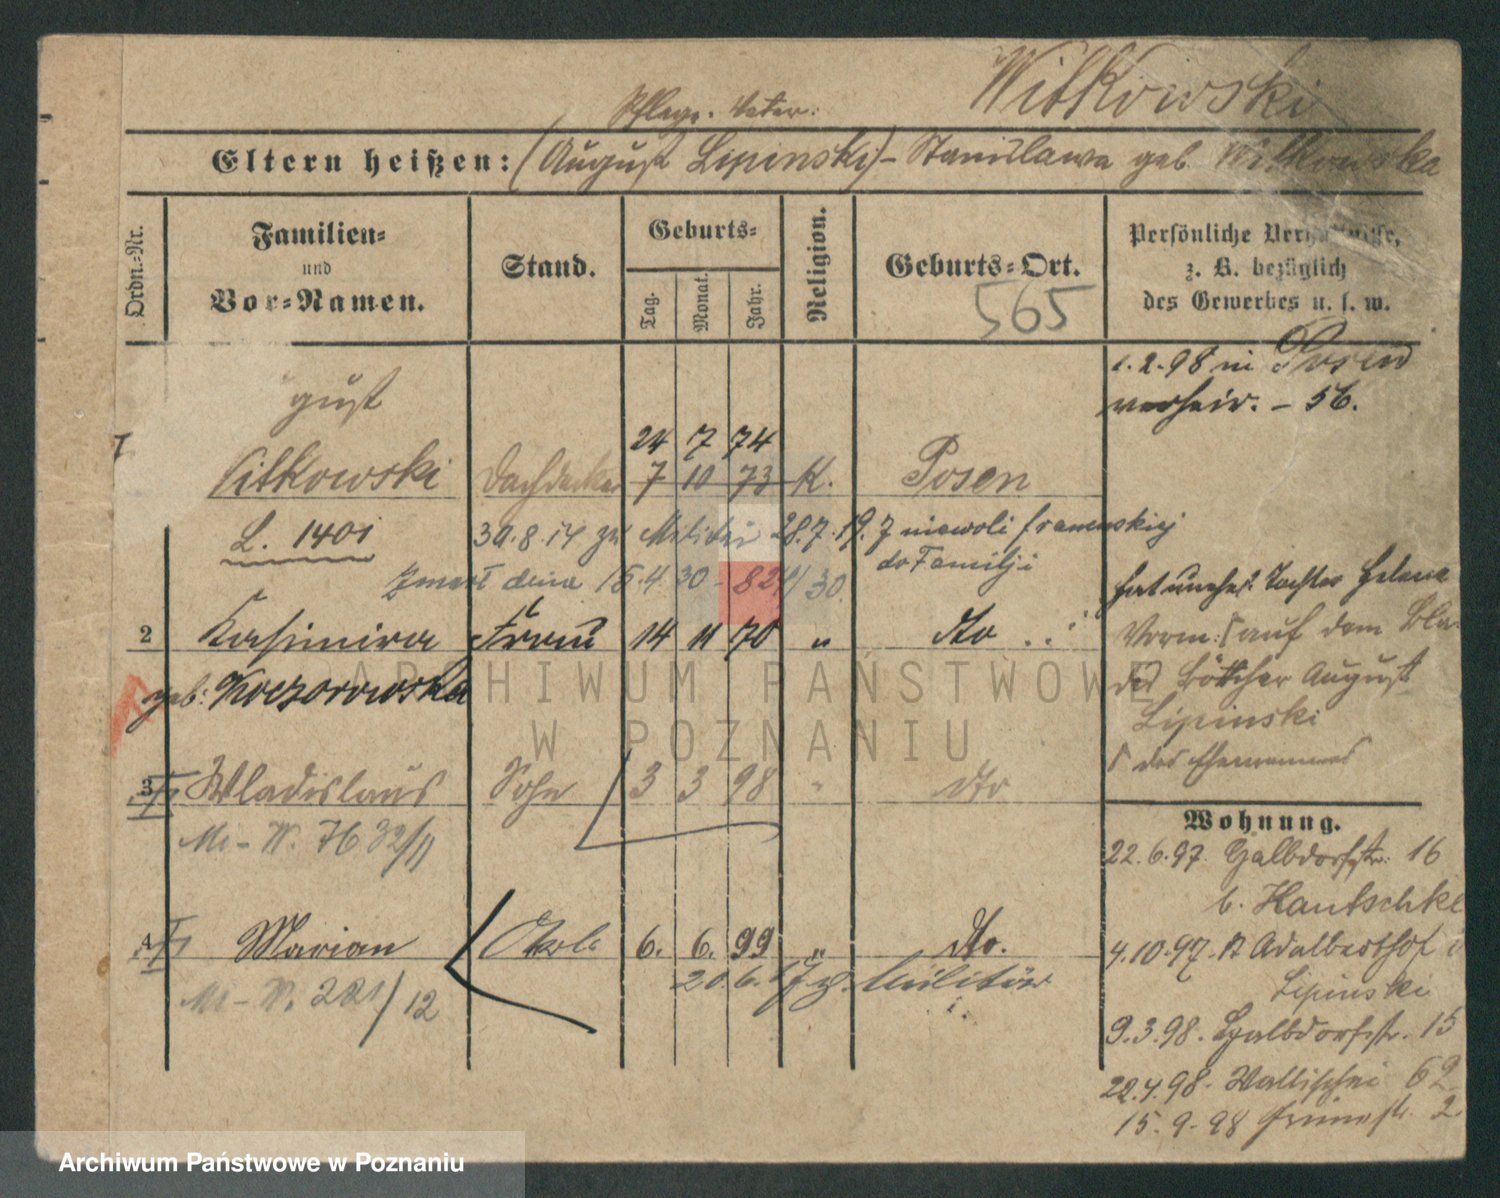 Witkowski
Pflege-Vater:
Eltern heißen: (August Lipinski) - Stanislawa geb. Witkowska
Ordn.-Nr.
Familien-
und
Vor-Namen.
Stand.
Geburts-
Tag.
Monat.
Jahr.
Religion.
Geburts-Ort.
565
Persönliche Verhältnisse,
z. B. bezüglich
des Gewerbes u. s. w.
1.2.98 in Posen
verheir. - 56.
gust
24 7 74
Witkowski Dachdecker 7 10 73 K. Posen
L. 1401
30.8.14 zu Militär 28.7.19. z niewoli francuskiej
do Familji
Zmarł dnia 15.4.30 - 824/30.
hat unehel. Tochter Helene
2 Kasimira Frau 14 11 70 " dto
geb: Koczorowska
Vorm: auf dem
des Böttcher August
Lipinski
des Ehemannes
3 Wladislaus Sohn 3 3 98 " dto
Mi-W. 76 32/11
4 Marian 6. 6. 99 " dto.
20.6.17 z. Militär
Mi-W. 221/12
Wohnung.
22.6.97. Halbdorfstr. 16
b. Hantschke
4.10.97. St Adalberthof
Lipinski
9.3.98. Halbdorfstr. 15
22.4.98. Wallischei 62
15.9.98 2
ARCHIWUM PAŃSTWOWE
W POZNANIU
Archiwum Państwowe w Poznaniu